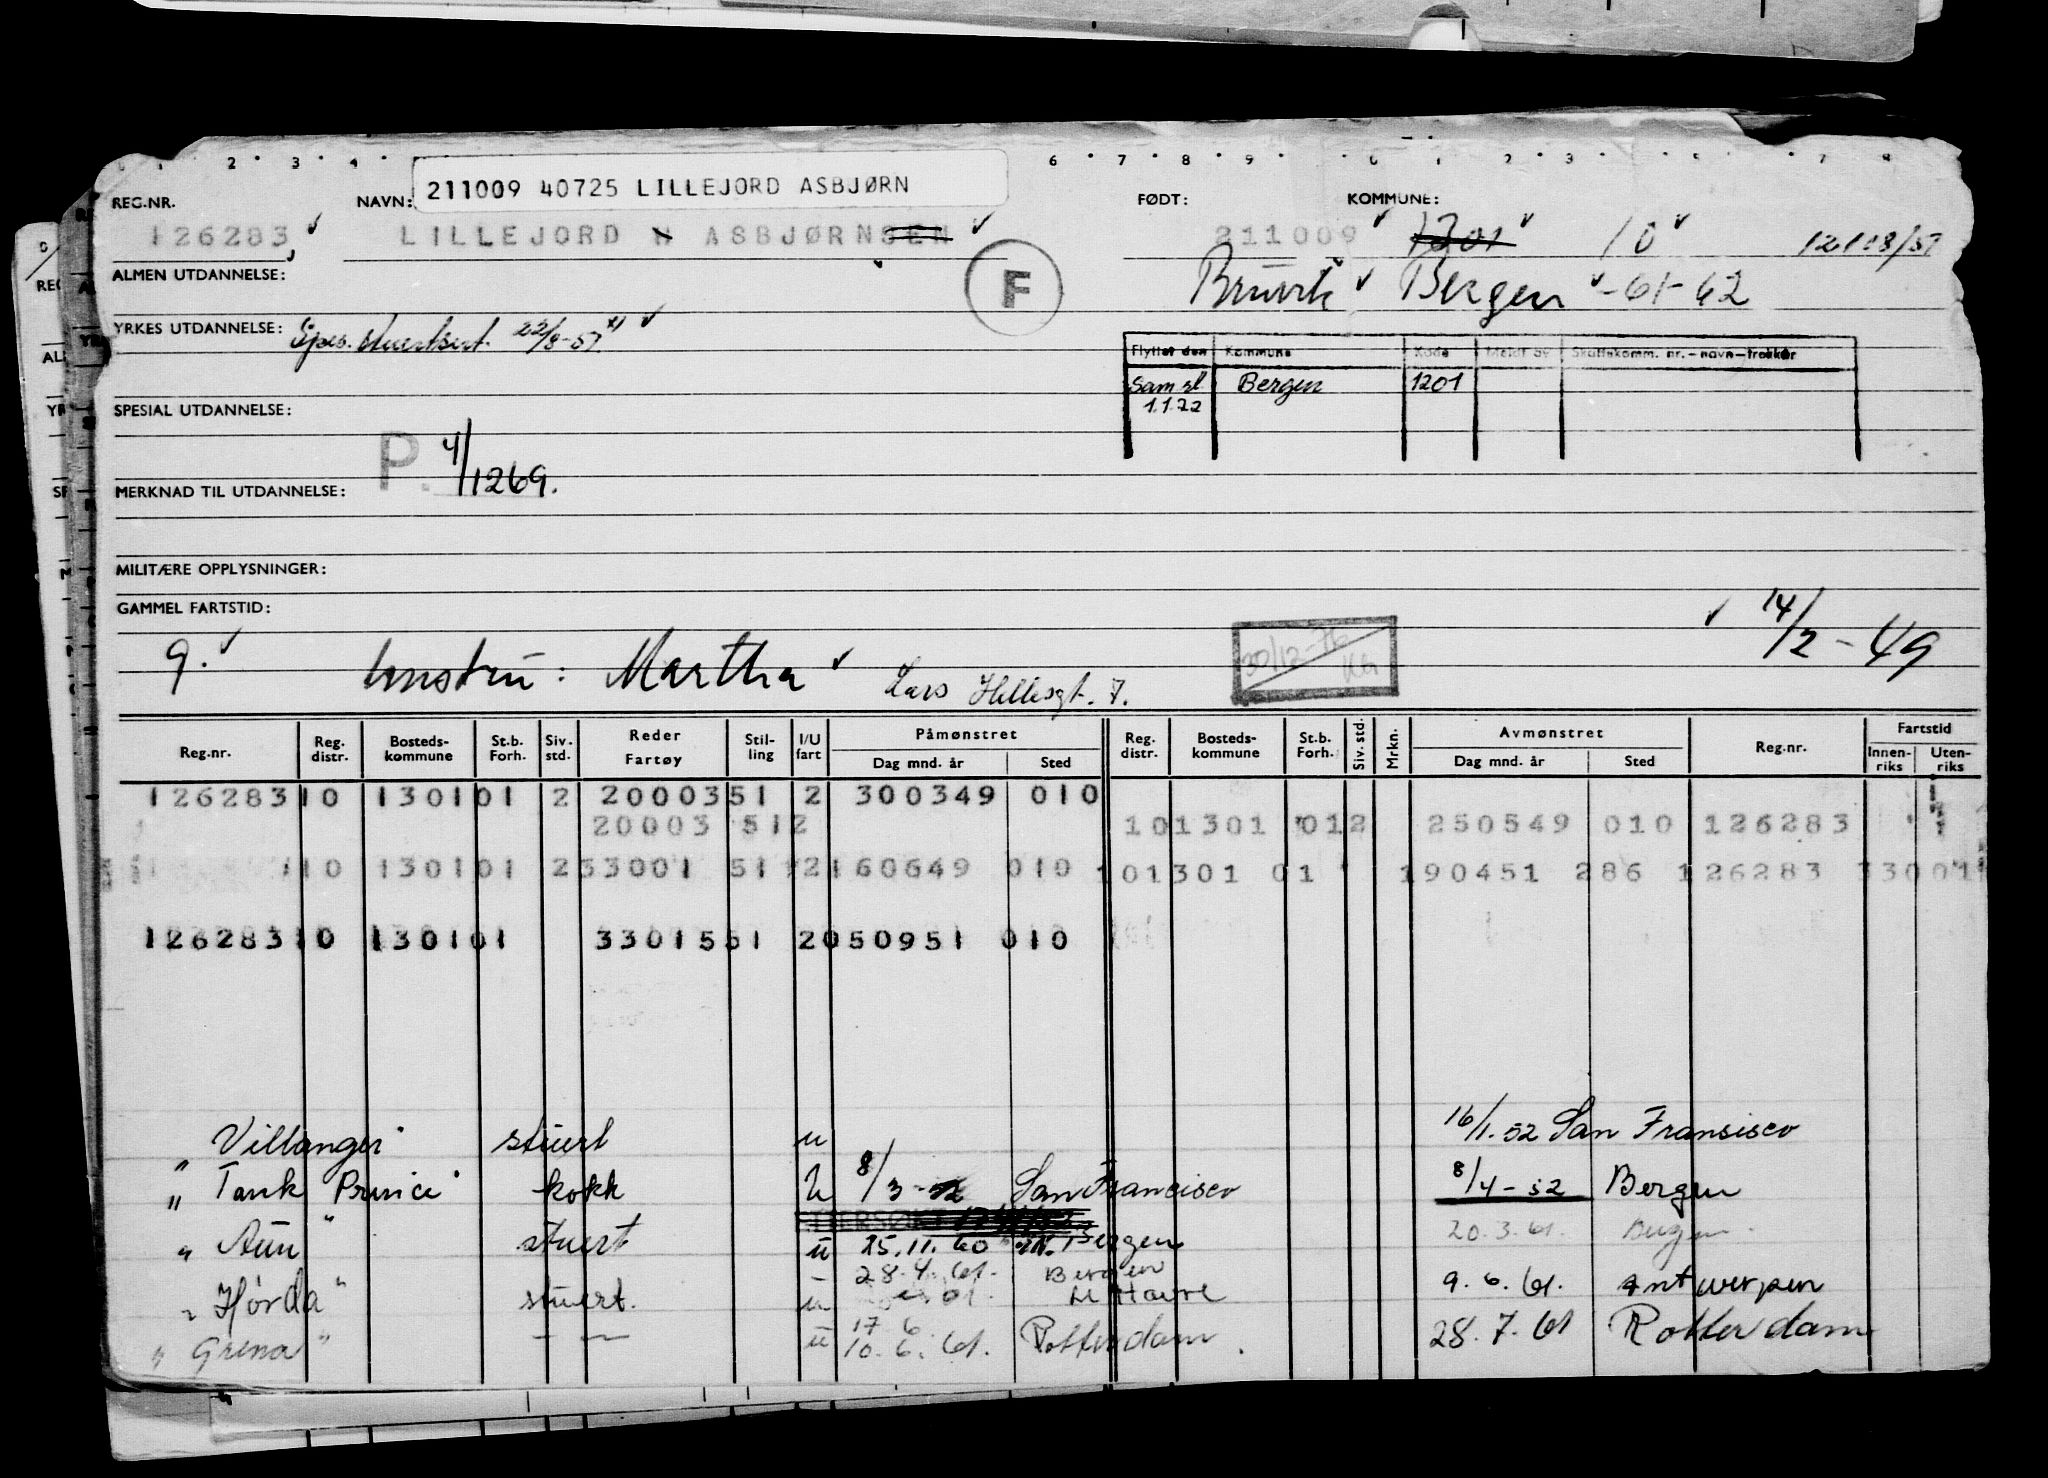 2 3 4 6 7 8 9 0 1 2 3 7 8
211009 40725 LILLEJORD ASBJØRN
REG.NR. NAVN: FØDT: KOMMUNE:
126283 LILLEJORD ASBJØRNSEN 211009 1201 10
ALMEN UTDANNELSE: F Bruvik Bergen -61-62
YRKES UTDANNELSE: 22/8-57
Flyttet den Kommune Kode Meldt av Skattekomm. nr.-navn-trekkår
Saml Bergen 1201
1.1.72
SPESIAL UTDANNELSE:
P. 4/1269.
MERKNAD TIL UTDANNELSE:
MILITÆRE OPPLYSNINGER:
GAMMEL FARTSTID:
14/2-49
30/12-76
g. hustru: Martha Lars Hillesgt. 7.
Reg.nr. Reg. distr. Bosteds-kommune St.b. Forh. Siv. std. Reder Fartøy Stil-ling I/U fart Påmønstret Dag mnd. år Sted Reg. distr. Bosteds-kommune St.b. Forh. Siv. std. Mrkn. Avmønstret Dag mnd. år Sted Reg.nr. Fartstid Innen-riks Uten-riks
126283 10 1301 01 2 20003 51 2 300349 010
20003 51 2 10 1301 01 2 250549 010 126283
10 1301 01 2 53001 51 2 160649 010 10 1301 01 190451 286 126283 33001
126283 10 1301 01 33015 51 2 050951 010
"Villanger" stuert u 16/1.52 San Fransisco
"Tank Prince" kokk u 8/3-52 San Francisco 8/4-52 Bergen
ETTERSØKT
"Aun" stuert u 25.11.60 Bergen 20.3.61. Bergen
28.4.61. Bergen
"Hørda" stuert. u Le Havre 9.6.61. Antwerpen
17 6
"Grena" — — u 10.6.61. Rotterdam. 28.7.61 Rotterdam